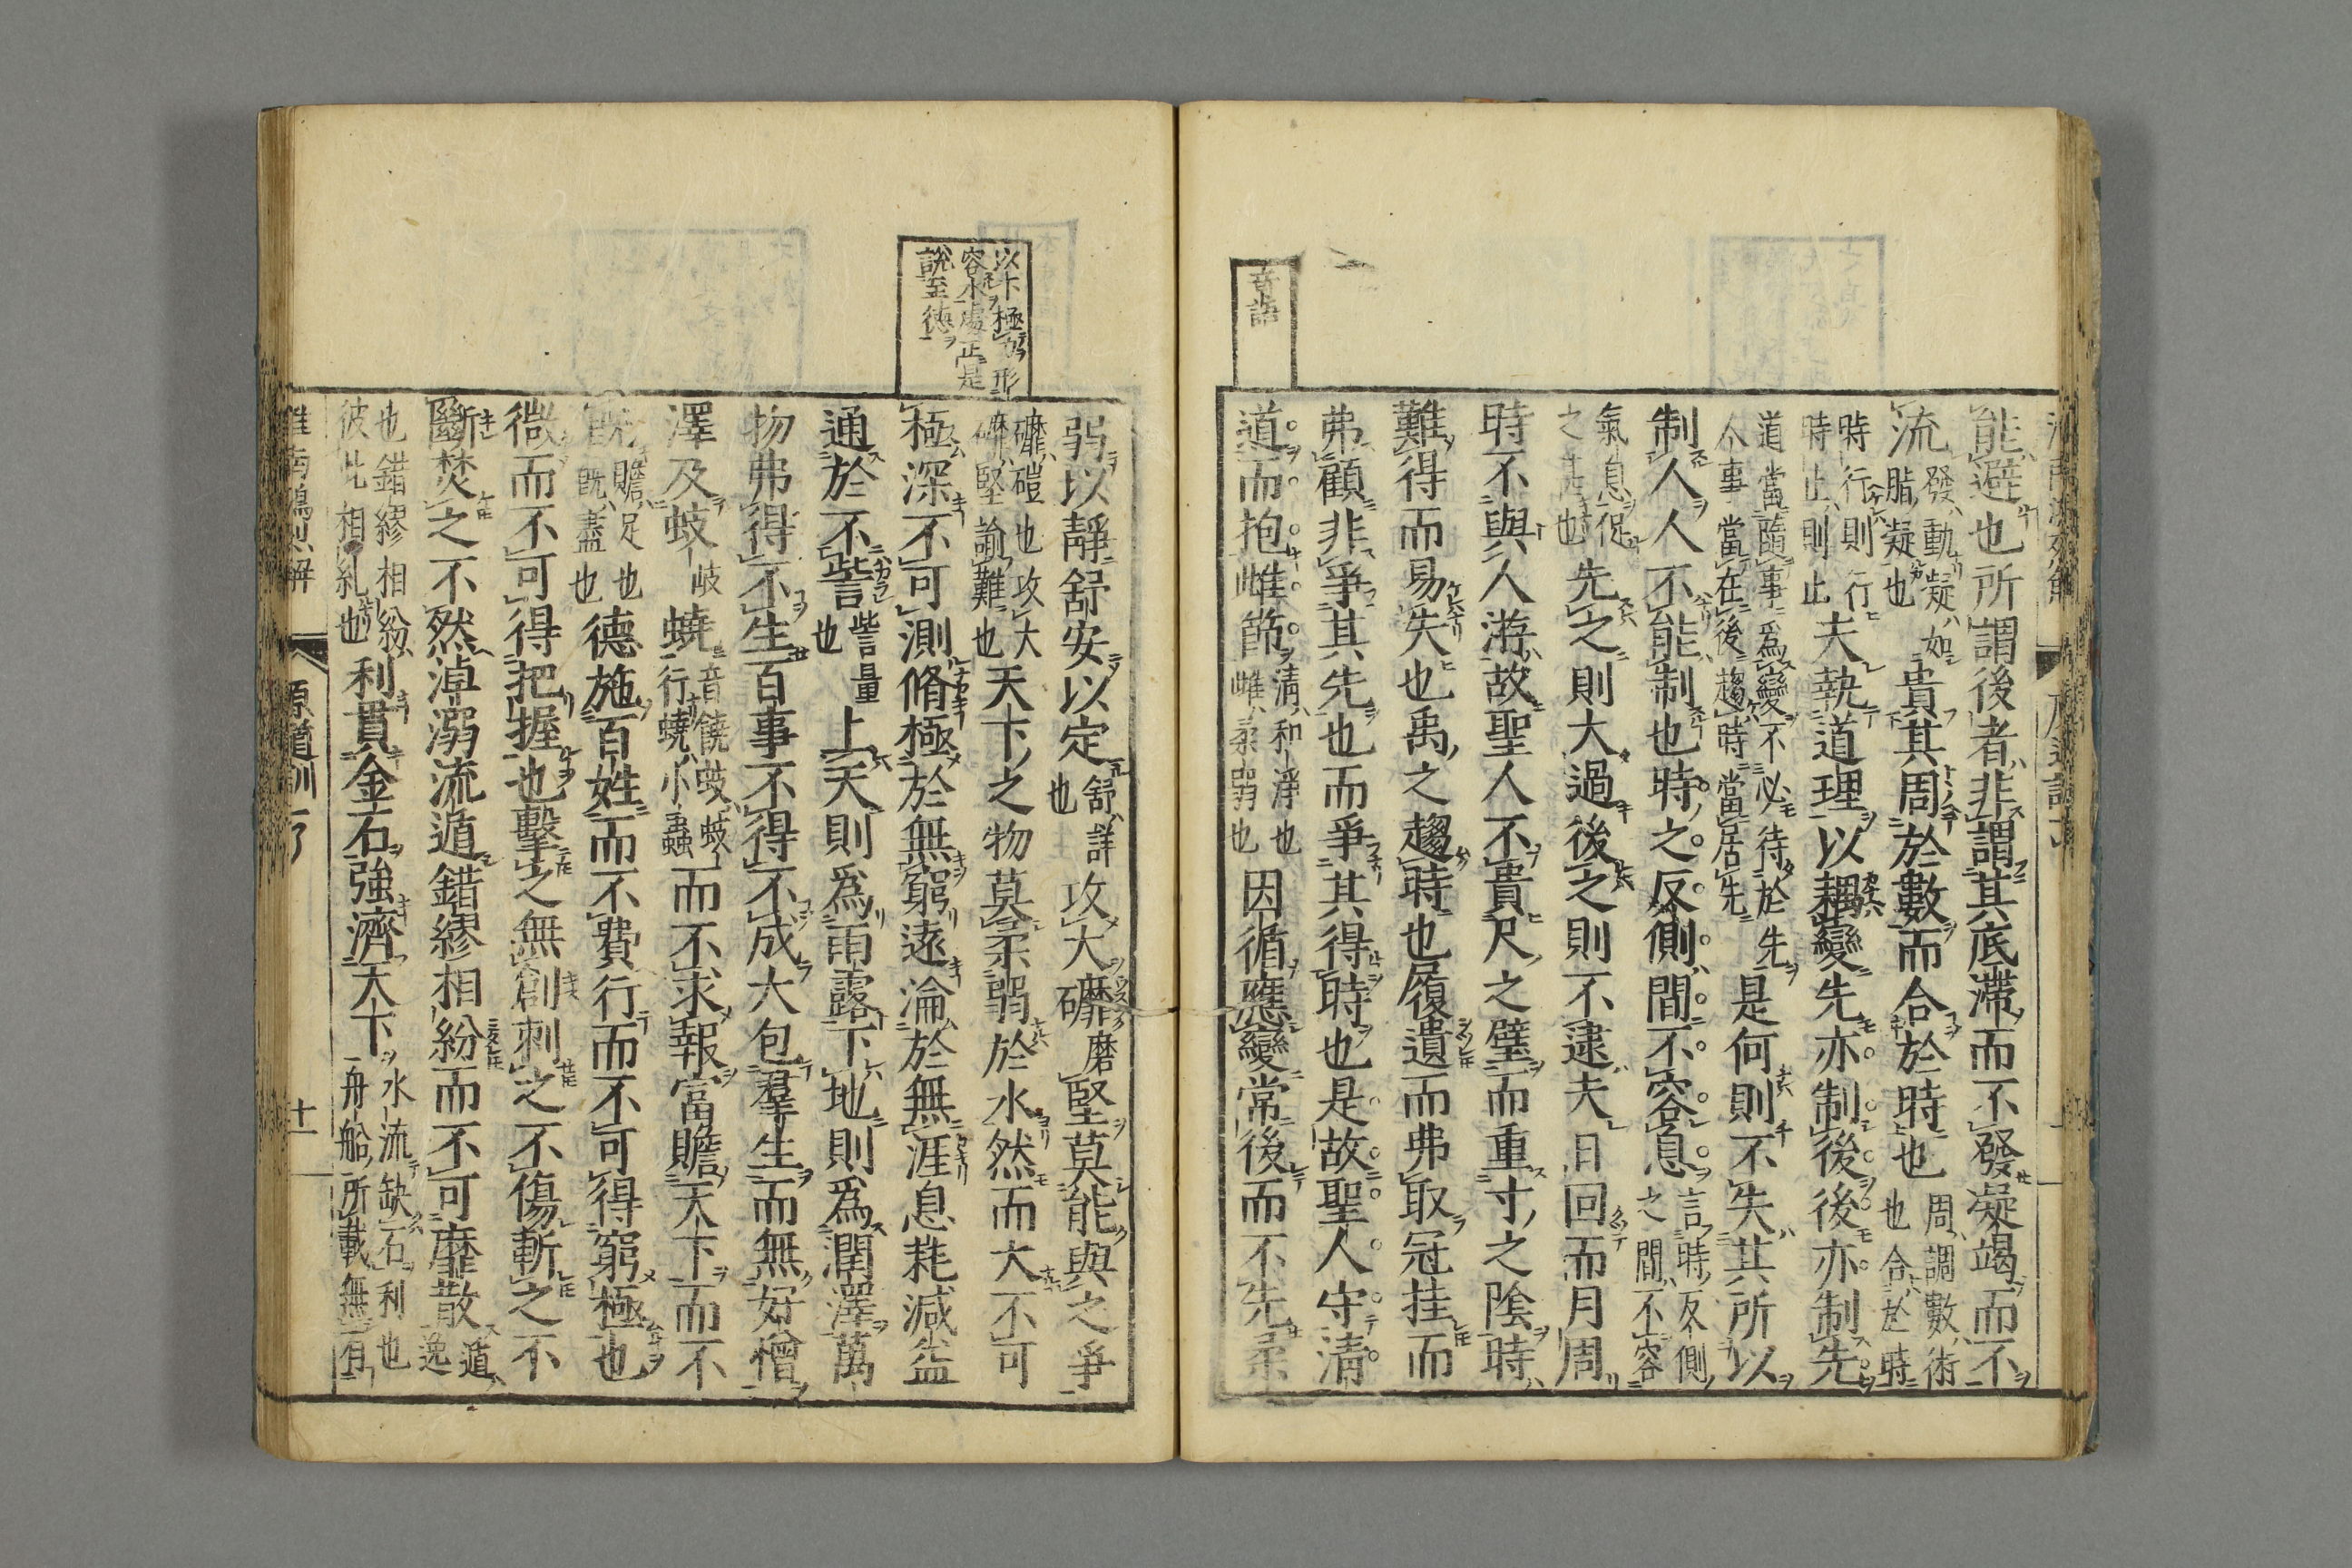 能避也所謂後者非謂其底滯而不發凝竭而不
流發動凝如脂凝也貴其周於數而合於時也周調數術也合於時
時行則行時止則止夫執道理以耦變先亦制後後亦制先
道當隨事爲變不必待於先人事當在後趨時當居先是何則不失其所以
制人人不能制也時之反側間不容息言時反側之間不容
氣息促之甚也先之則大過後之則不逮夫日回而月周
時不與人游故聖人不貴尺之璧而重寸之陰時
難得而易失也禹之趨時也履遺而弗取冠挂而
弗顧非爭其先也而爭其得時也是故聖人守清
道而抱雌節清和淨也雌柔弱也因循應變常後而不先柔
奇語
弱以靜舒安以定舒詳也攻大䃺磨堅莫能與之爭
䃺磑也攻大䃺堅諭難也天下之物莫柔弱於水然而大不可
極深不可測脩極於無窮遠淪於無涯息耗減益
通於不訾訾量也上天則爲雨露下地則爲潤澤萬
物弗得不生百事不得不成大包羣生而無好憎
澤及蚑岐蟯音饒蚑蚑行蟯小蟲而不求報富贍天下而不
既贍足也既盡也德施百姓而不費行而不可得窮極也
微而不可得把握也擊之無創刺之不傷斬之不
斷焚之不然淖溺流遁錯繆相紛而不可靡散遁逸
也錯繆相紛彼此相糺也利貫金石強濟天下水流缺石利也舟船所載無有
以下極力形
容水處正是
說至德
淮南鴻烈解 原道訓 十一